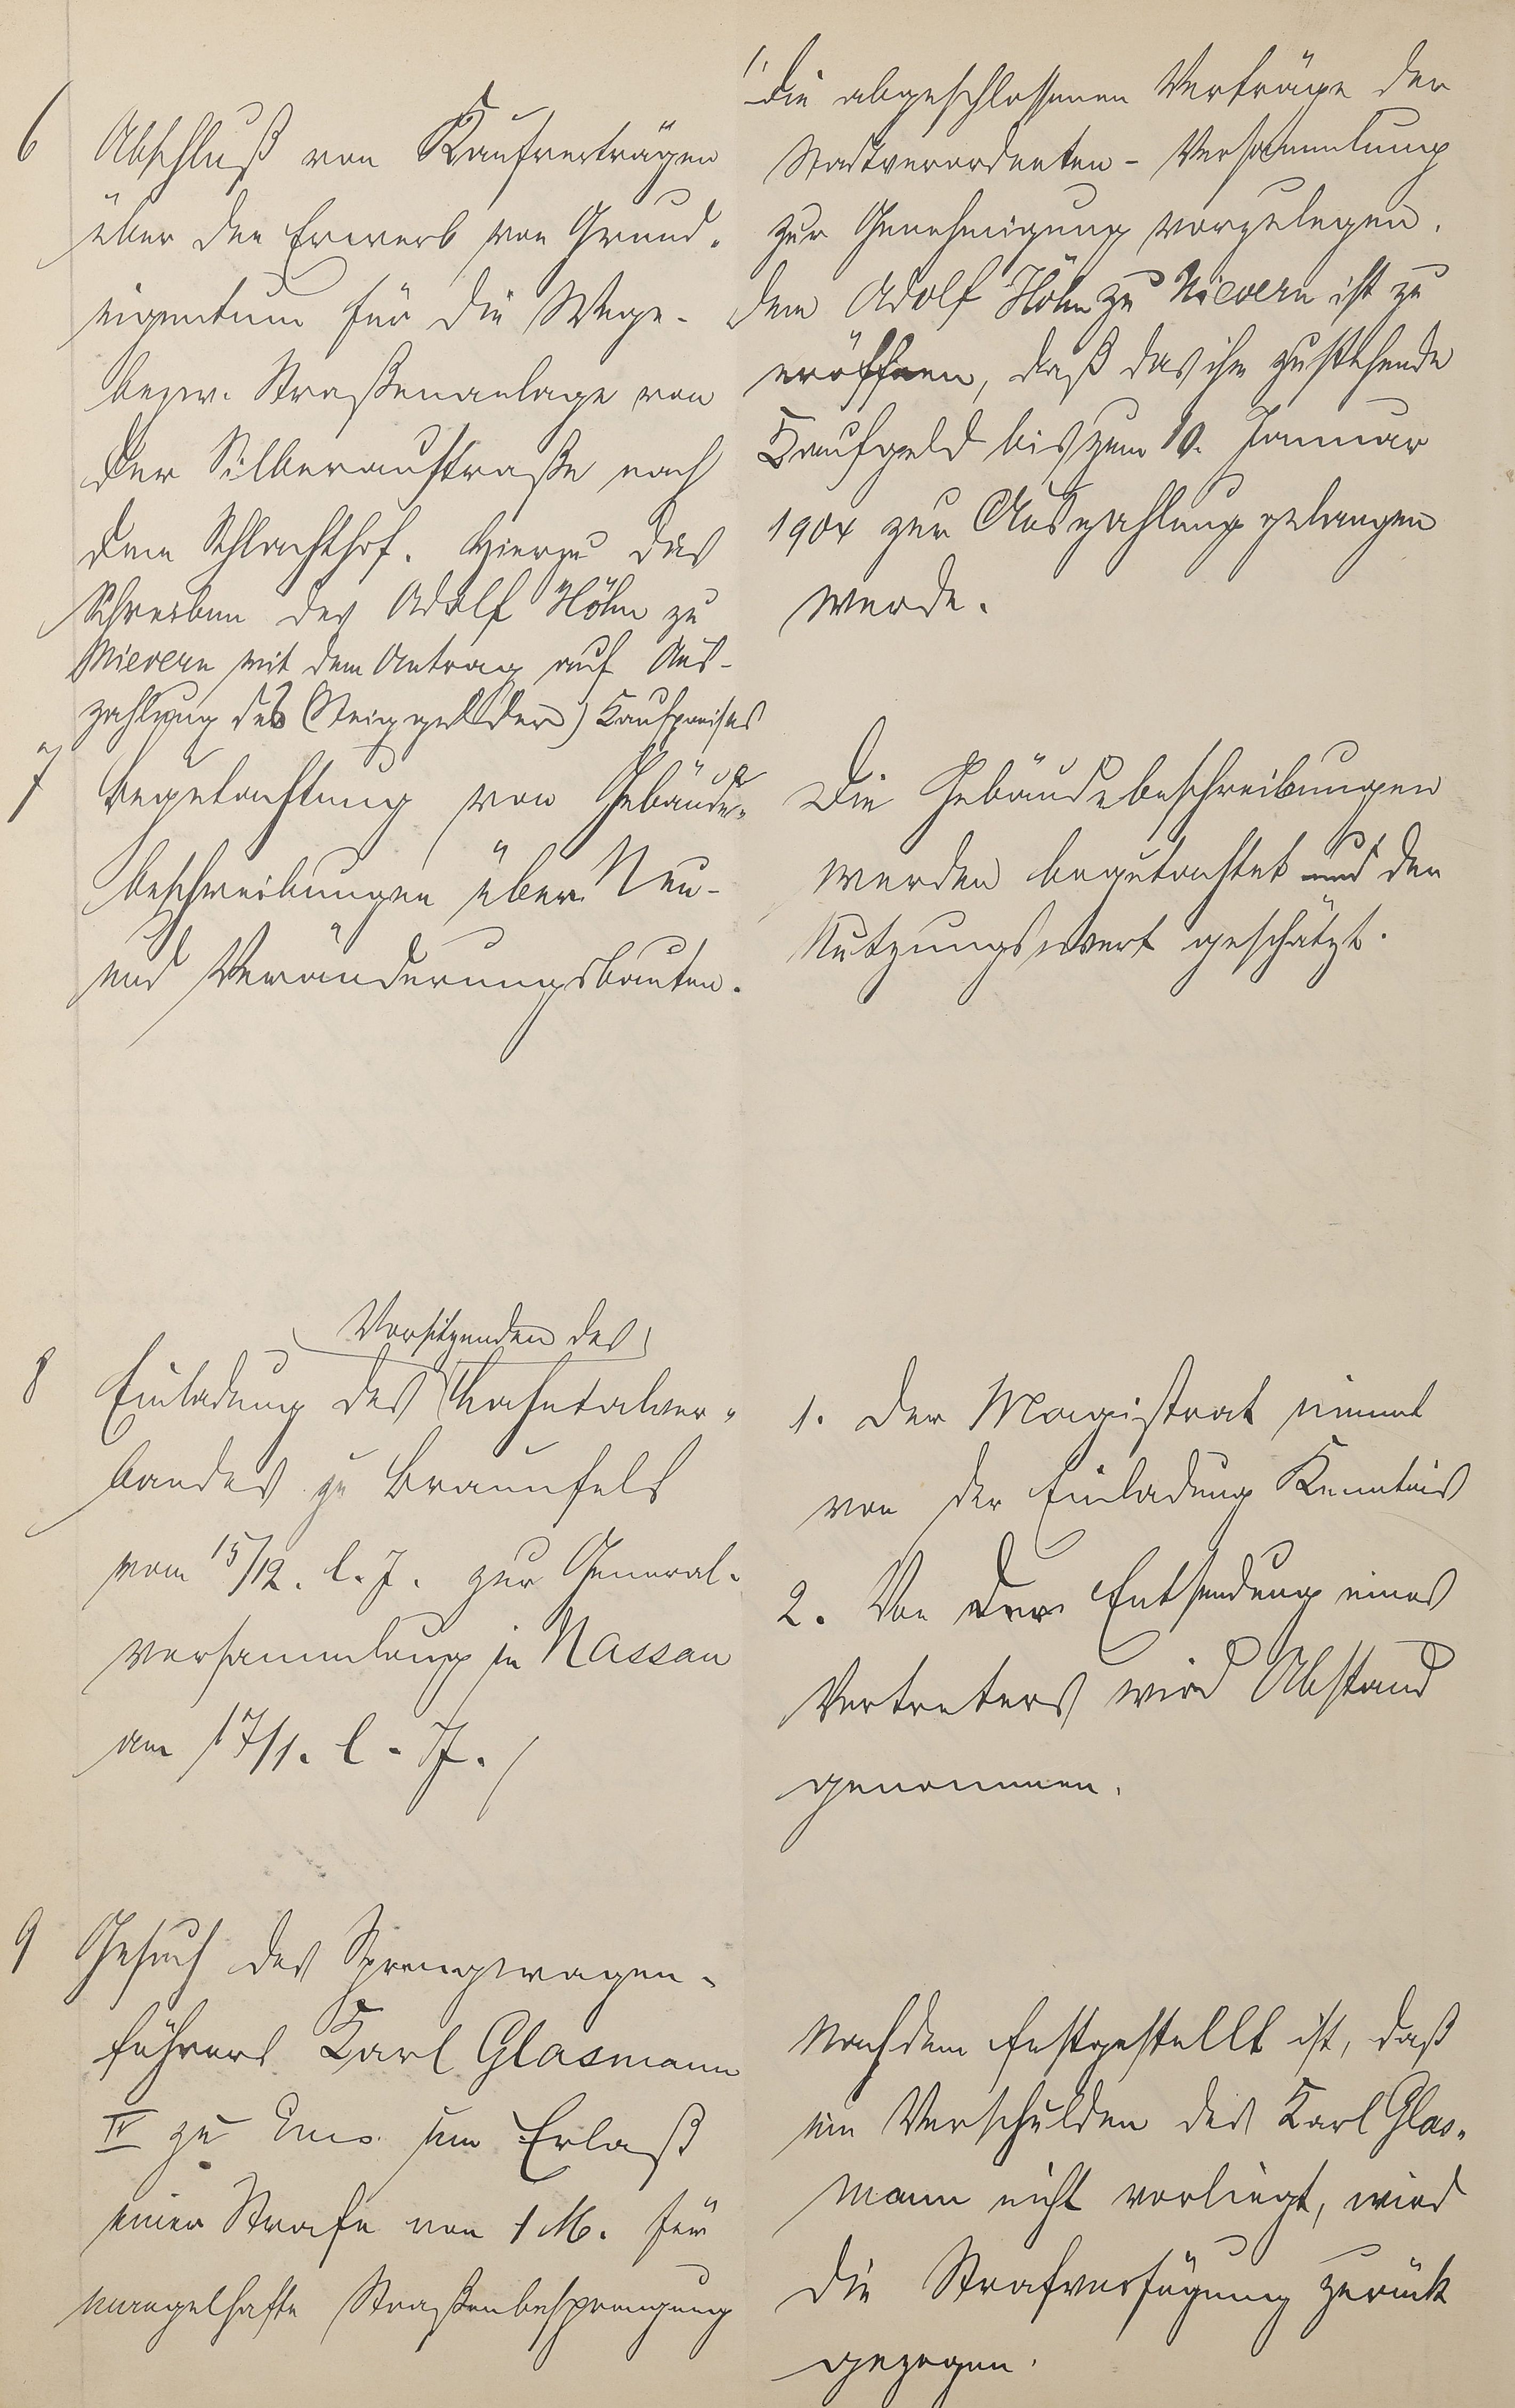 6
Abschluß von Kaufverträgen
über den Erwerb von Grund-
eigentum für die Wege-
bezw. Straßenanlage von
der Silberaustraße nach
dem Schlachthof. Hierzu das
Schreiben des Adolf Höhn zu
Nievern mit dem Antrag auf Aus-
zahlung des (Steiggelder) Kaufpreises
1,
Die abgeschlossenen Verträge der
Stadtverordneten-Versammlung
zur Genehmigung vorzulegen.
Dem Adolf Höhn zu Nievern ist zu
eröffnen, daß das ihm zustehende
Kaufgeld bis zum 10. Januar
1904 zur Auszahlung gelangen
werde.
7
Begutachtung von Gebäude-
beschreibungen über Neu-
und Veränderungsbauten.
Die Gebäudebeschreibungen
werden begutachtet und der
Nutzungswert geschätzt.
8
Vorsitzenden des
Einladung des Lahntalver-
bandes zu Braunfels
vom 15/12. l. J. zur General-
versammlung in Nassau
am 17/1. l. J.
1. Der Magistrat nimmt
von der Einladung Kenntnis
2. Von der Entsendung eines
Vertreters wird Abstand
genommen.
9
Gesuch des Sprengwagen-
führers Karl Glasmann
IV zu Ems um Erlaß
einer Strafe von 1 M. für
mangelhafte Straßenbesprengung
Nachdem festgestellt ist, daß
ein Verschulden des Karl Glas-
mann nicht vorliegt, wird
die Strafverfügung zurück
gezogen.